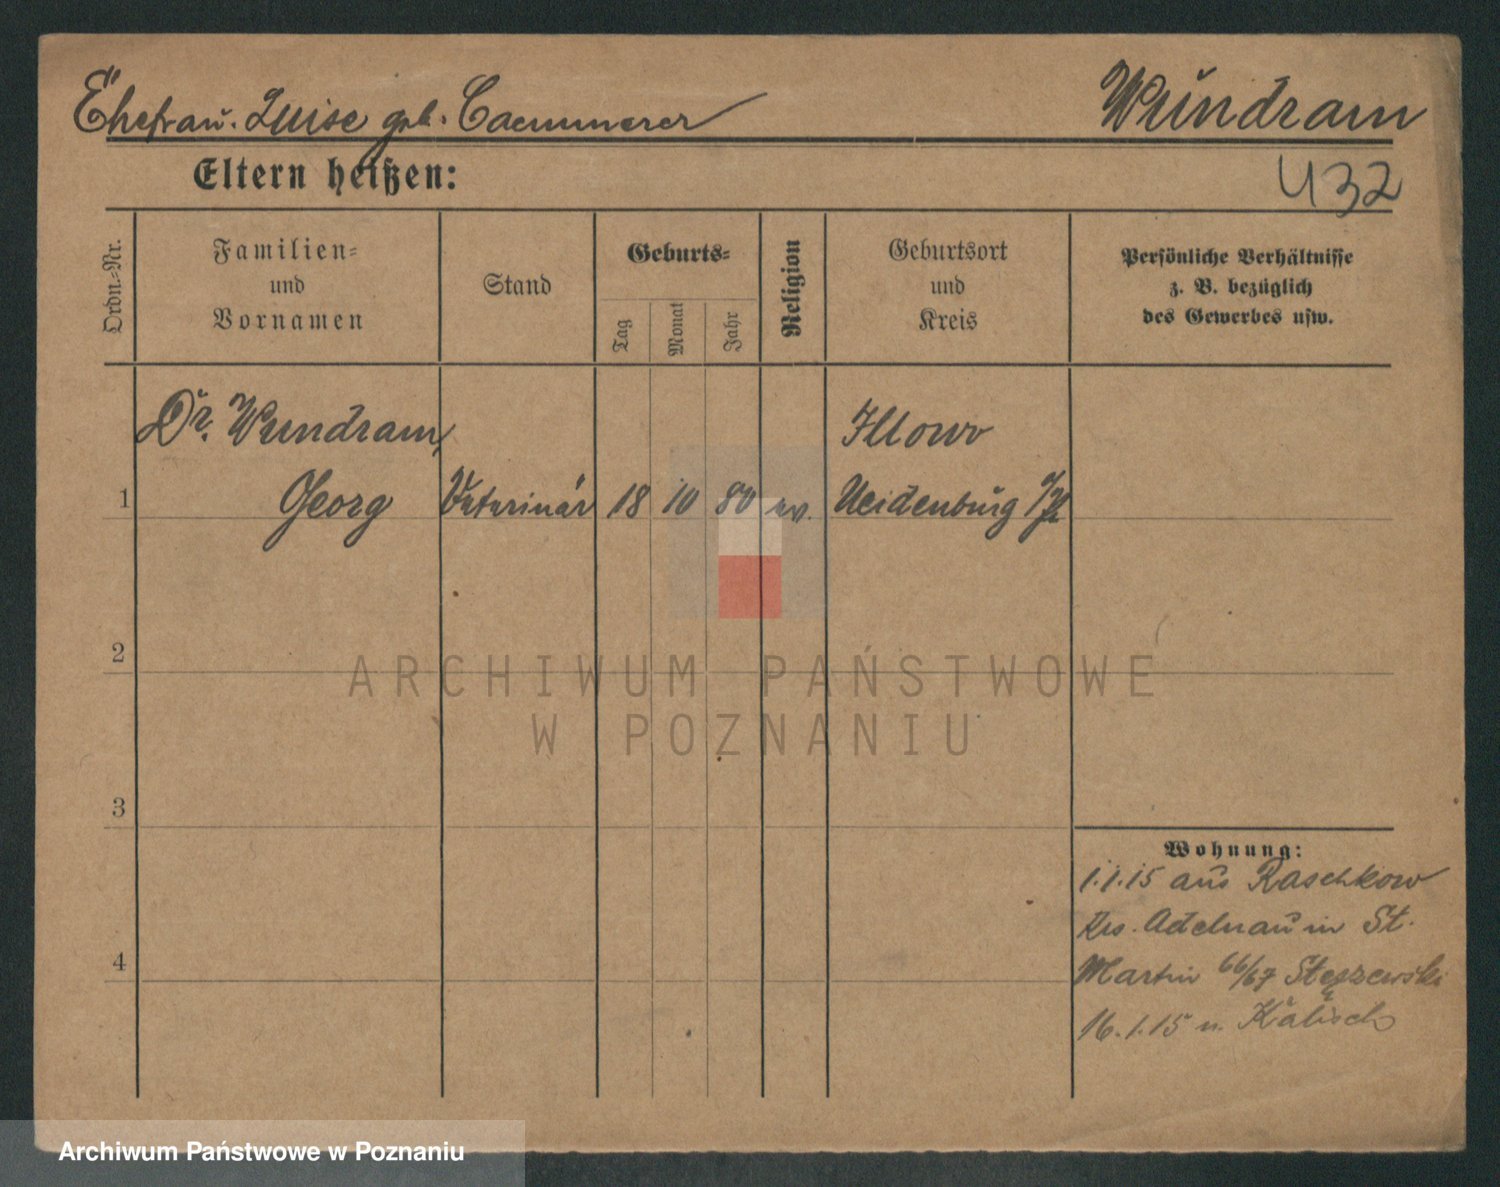 Ehefrau. Luise geb. Caemmerer
Wundram
Eltern heißen:
432
Ordn.=Nr.
Familien=
und
Vornamen
Stand
Geburts=
Tag
Monat
Jahr
Religion
Geburtsort
und
Kreis
Persönliche Verhältnisse
z. B. bezüglich
des Gewerbes usw.
Dr. Wundram, Illowo
1 Georg Veterinär 18 10 80 ev. Neidenburg
2
ARCHIWUM PAŃSTWOWE
W POZNANIU
3
Wohnung:
1.1.15 aus Raschkow
Krs. Adelnau in St.
4
Martin 66/67 Stęszewski
16.1.15 n. Kalisch
Archiwum Państwowe w Poznaniu